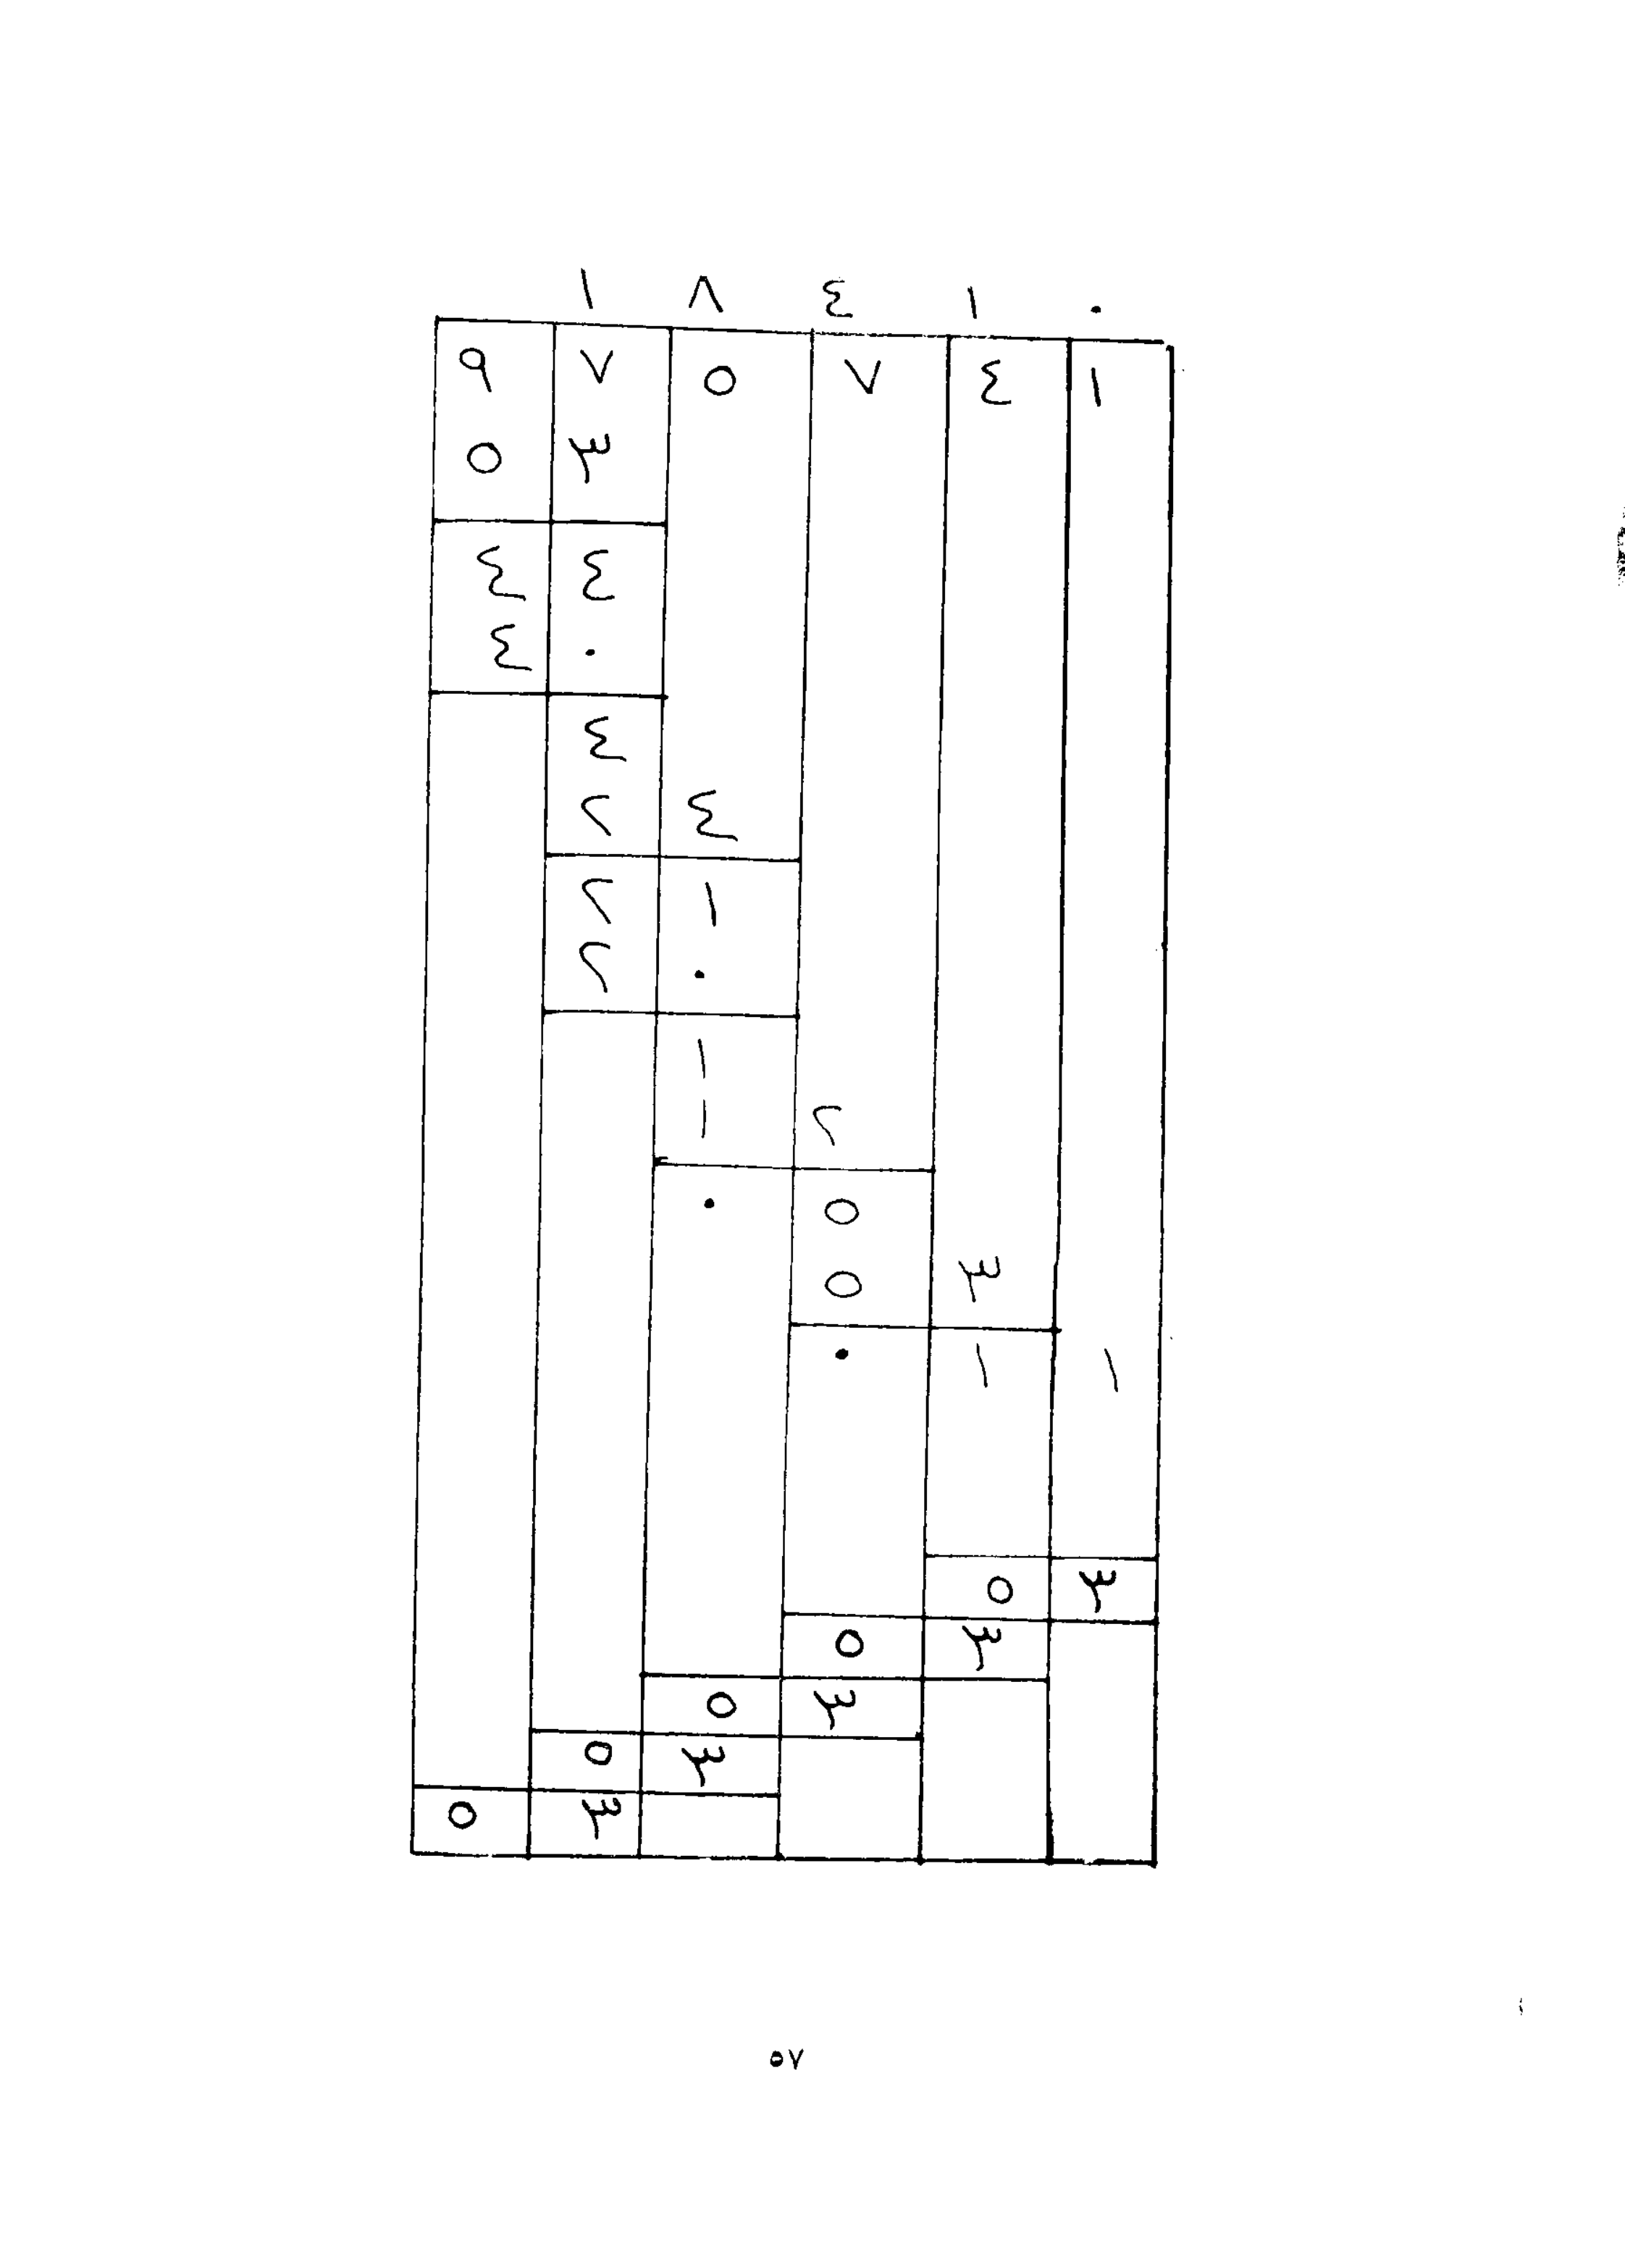 ١ ٨ ٤ ١ ٠
٩ ٧ ٥ ٧ ٤ ١
٥ ٣
٤ ٤
٤ ٠
٤
٢ ٤
٢ ١
٢ ٠
١
١ ٢
٠ ٥
٥ ٣
٠ ١ ١
٥ ٣
٥ ٣
٥ ٣
٥ ٣
٥ ٣
٥٧